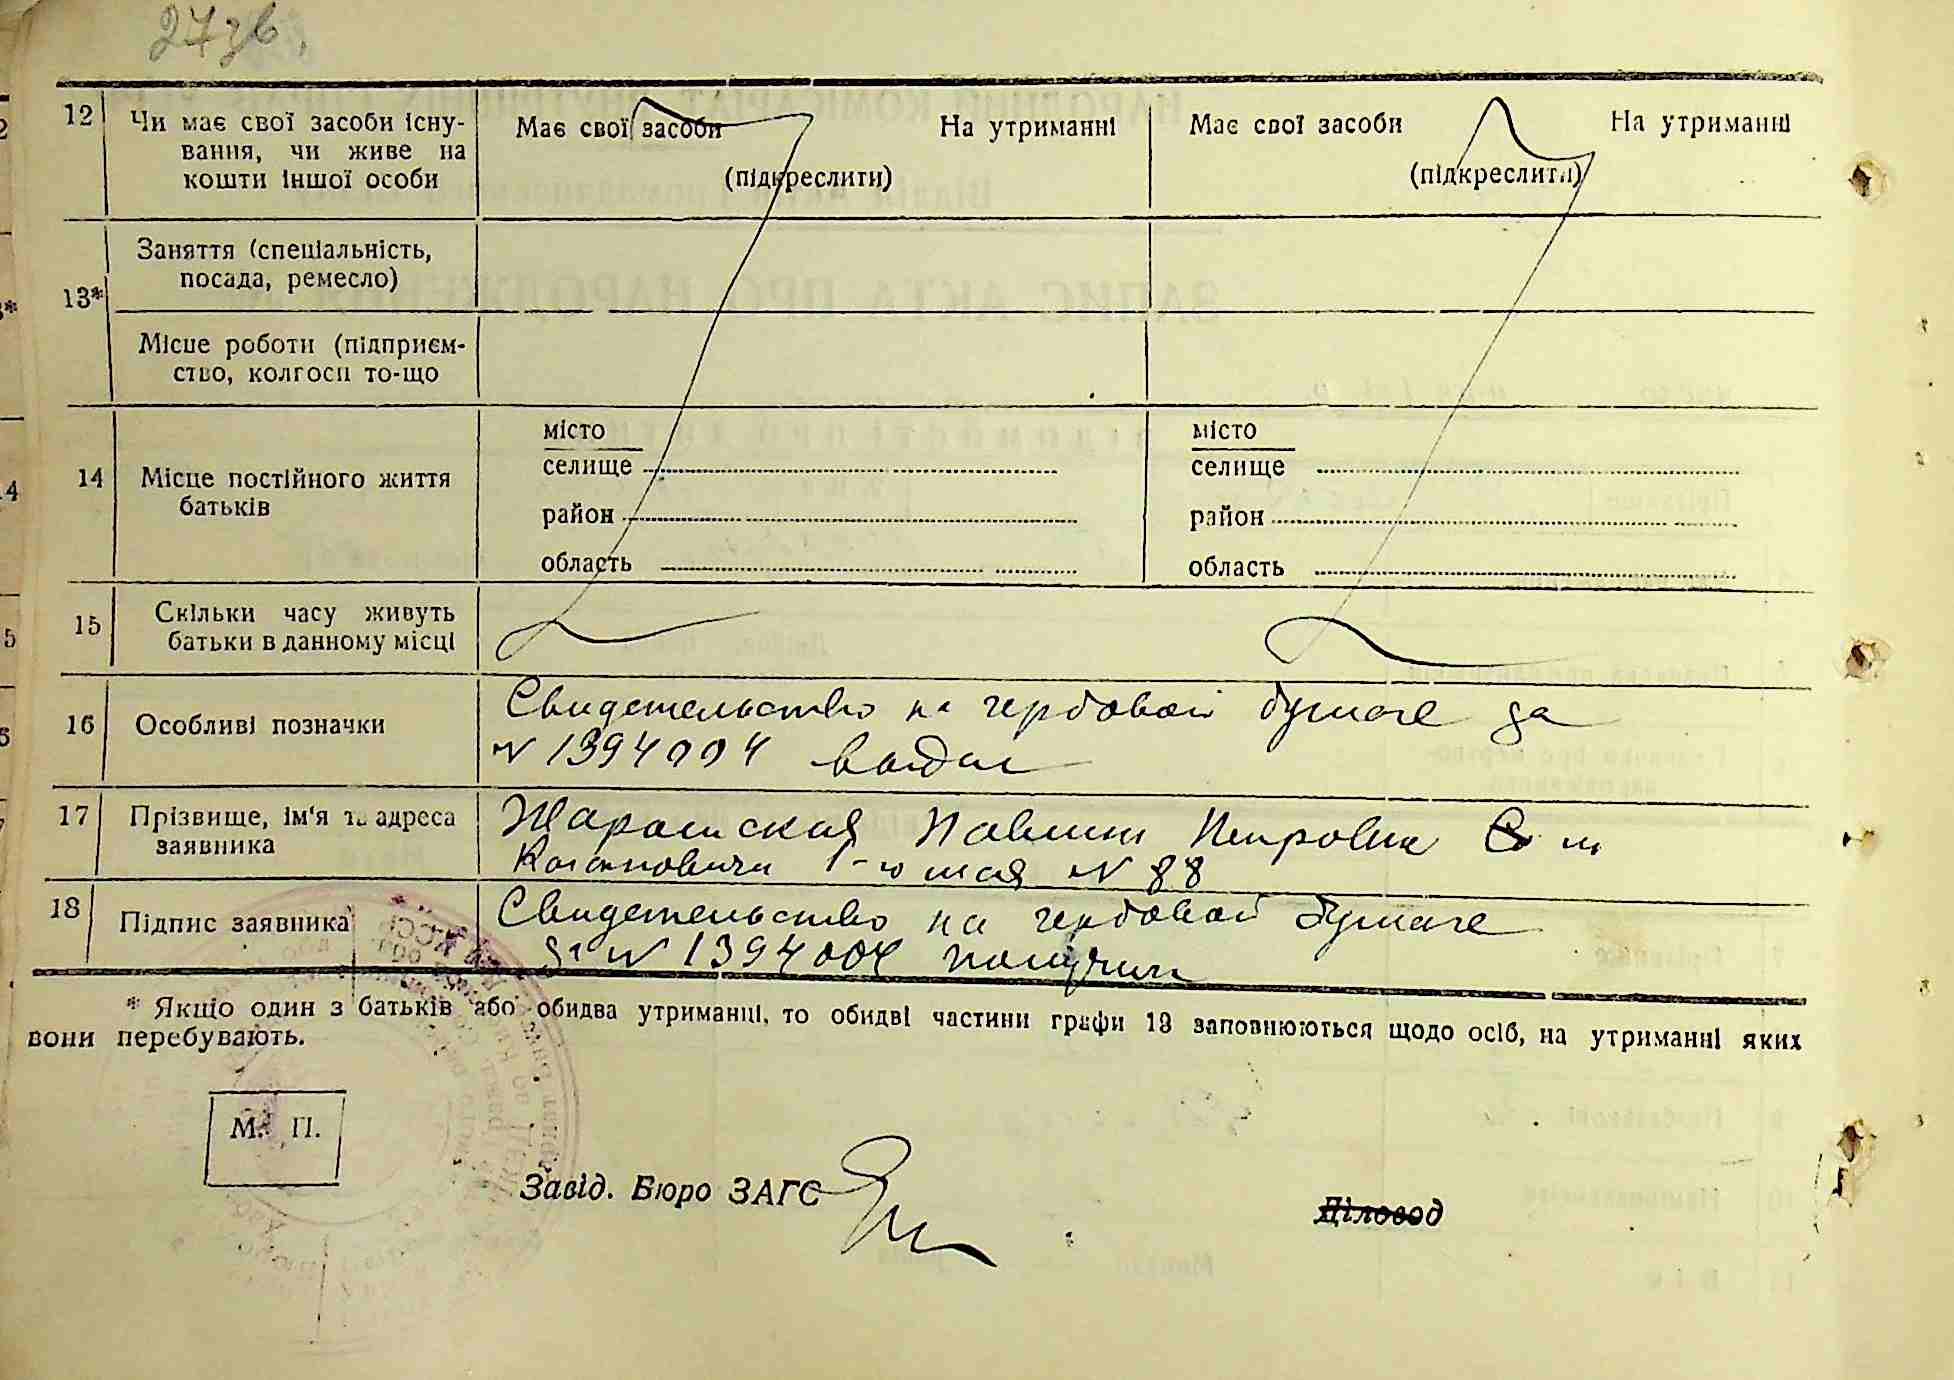 27зв.
12 Чи має свої засоби існу-
вання, чи живе на
кошти іншої особи
Має свої засоби На утриманні
(підкреслити)
Має свої засоби На утриманні
(підкреслити)
13* Заняття (спеціальність,
посада, ремесло)
Місце роботи (підприєм-
ство, колгосп то-що
14 Місце постійного життя
батьків
місто
селище
район
область
місто
селище
район
область
15 Скільки часу живуть
батьки в данному місці
16 Особливі позначки
Свидетельство на гербовой бумаге за
N 1394004 выдал
17 Прізвище, ім'я та адреса
заявника
Павлин Петровна
Кагановичи 1-го мая N 88
18 Підпис заявника
Свидетельство на гербовой бумаге
за N 1394004 получил
* Якщо один з батьків або обидва утриманці, то обидві частини графи 13 заповнюються щодо осіб, на утриманні яких
вони перебувають.
М. П.
Завід. Бюро ЗАГС
Діловод